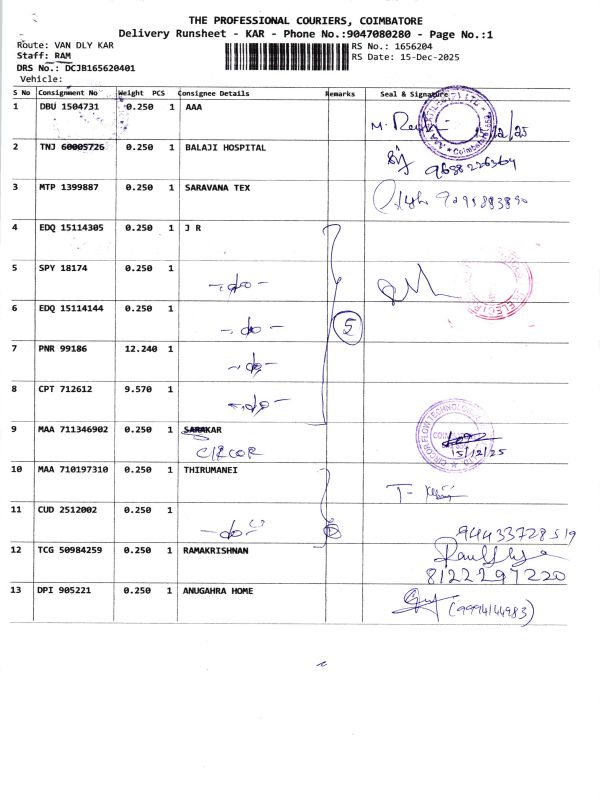 THE PROFESSIONAL COURIERS, COIMBATORE
Delivery Runsheet - KAR - Phone No.:9047080280 - Page No.:1
Route: VAN DLY KAR RS No.: 1656204
Staff: RAM RS Date: 15-Dec-2025
DRS No.: DCJB165620401
Vehicle:
S No Consignment No Weight PCS Consignee Details Remarks Seal & Signature
1 DBU 1504731 0.250 1 AAA
2 TNJ 60005726 0.250 1 BALAJI HOSPITAL
9688226364
3 MTP 1399887 0.250 1 SARAVANA TEX
4 EDQ 15114305 0.250 1 J R
5 SPY 18174 0.250 1
-do-
6 EDQ 15114144 0.250 1
-do- 5
7 PNR 99186 12.240 1
-do-
8 CPT 712612 9.570 1
-do-
9 MAA 711346902 0.250 1 SARAKAR
CIRCOR 15/12/25
10 MAA 710197310 0.250 1 THIRUMANEI
11 CUD 2512002 0.250 1
-do- 94433728519
12 TCG 50984259 0.250 1 RAMAKRISHNAN
8122297220
13 DPI 905221 0.250 1 ANUGAHRA HOME
(9994144983)